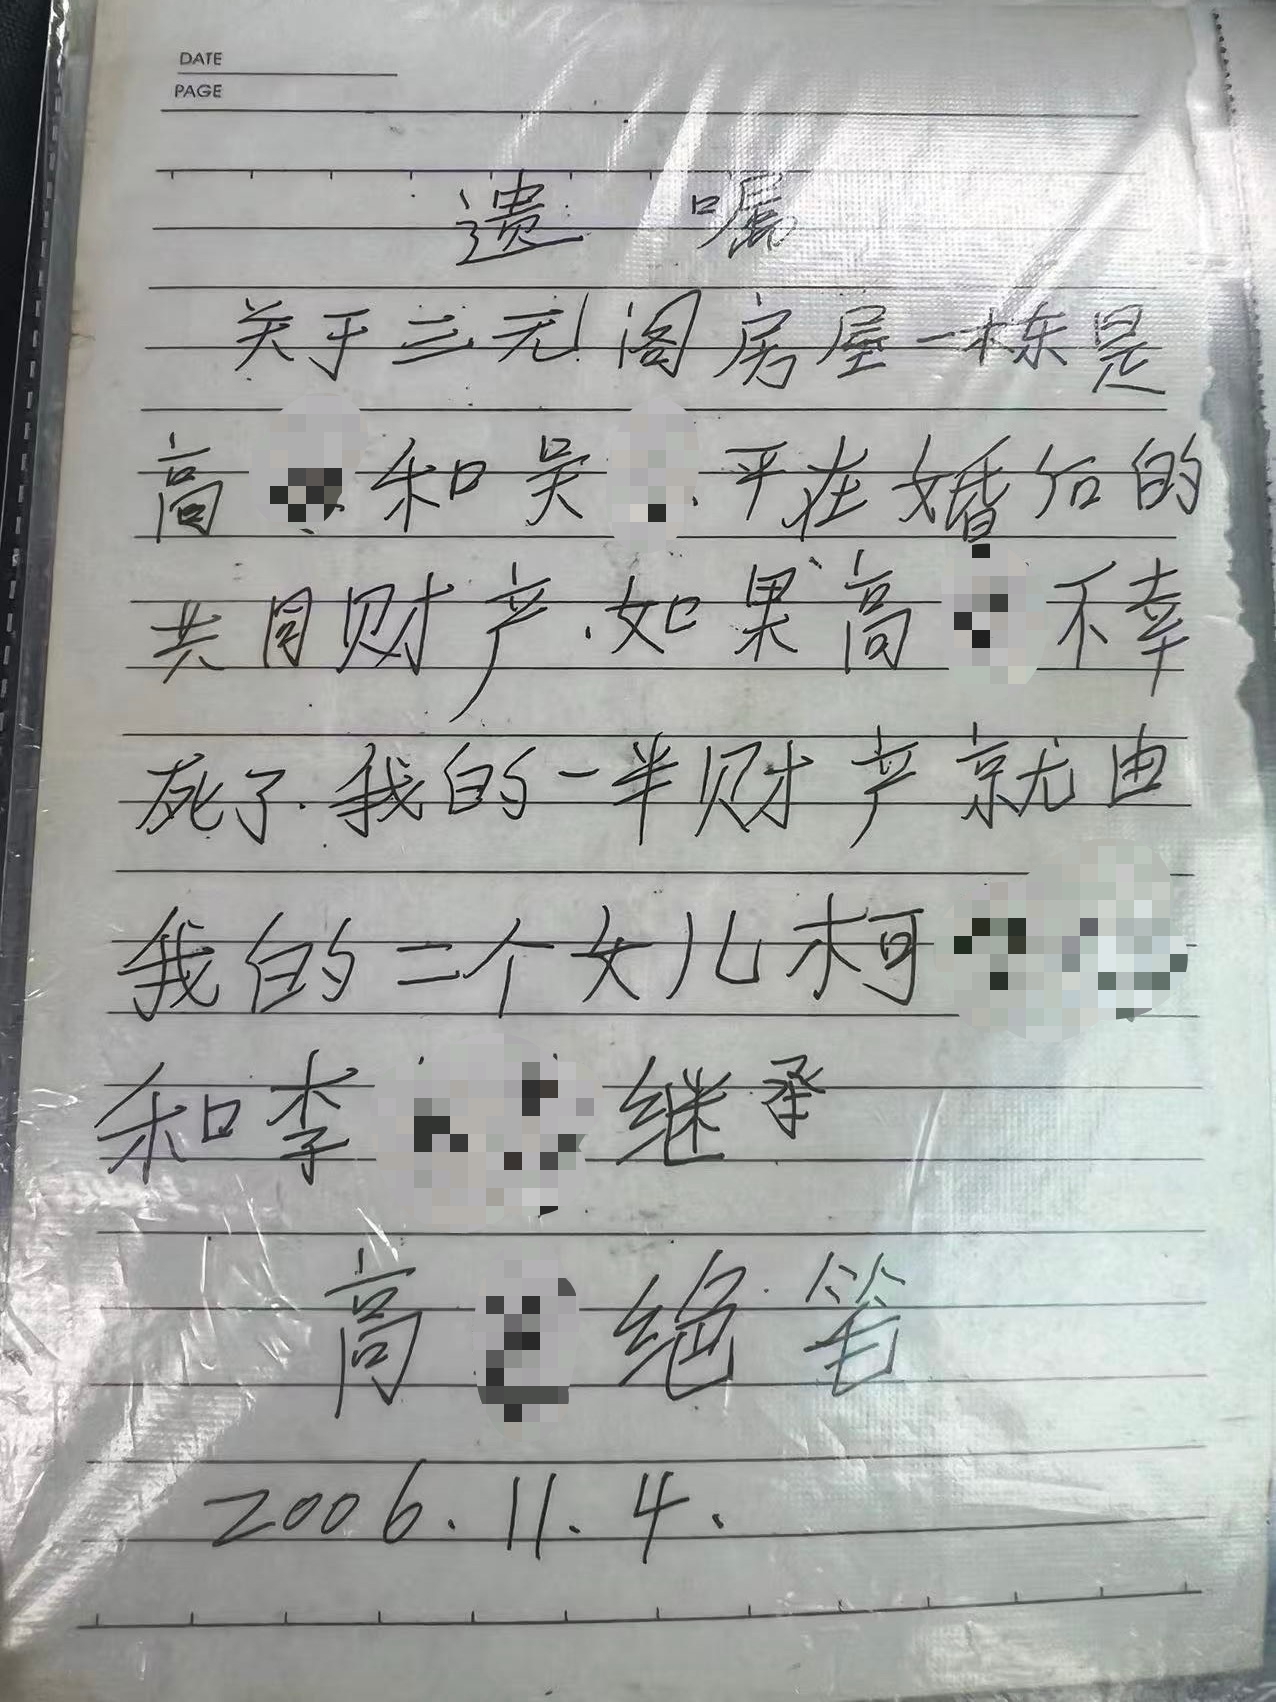 DATE
PAGE
遗嘱
关于三元阁房屋一栋是
高 和吴 平在婚后的
共同财产.如果高 不幸
死了.我的一半财产就由
我的二个女儿柯
和李 继承
高 绝笔
2006.11.4.